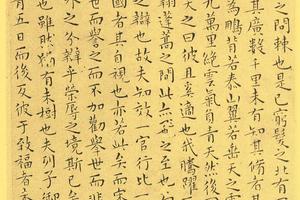 之問棘也是已窮髮之北有
其廣數千里未有知其脩者其
為鵬背若泰山翼若垂天之雲
九萬里絕雲氣負青天然後
之曰彼且奚適也我騰躍
翔蓬蒿之間此亦飛之至也
之辯也故夫知效一官行比一
國者其自視也亦若此矣而宋
世而譽之而不加勸舉世而非
外之分辯乎榮辱之境斯已
也雖然猶有未樹也夫列子御
有五日而後反彼于致福者